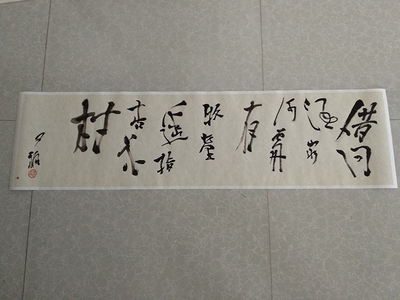 借问
酒家
何處
有
牧童
遥指
杏花
村